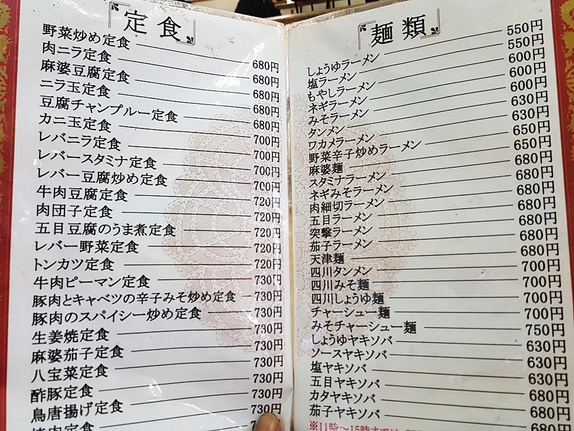 定食
野菜炒め定食 680円
肉ニラ定食 680円
麻婆豆腐定食 680円
ニラ玉定食 680円
豆腐チャンプルー定食 680円
カニ玉定食 700円
レバニラ定食 700円
レバースタミナ定食 700円
レバー豆腐炒め定食 700円
牛肉豆腐定食 720円
肉団子定食 720円
五目豆腐のうま煮定食 720円
レバー野菜定食 720円
トンカツ定食 720円
牛肉ピーマン定食 730円
豚肉とキャベツの辛子みそ炒め定食 730円
豚肉のスパイシー炒め定食 730円
生姜焼定食 730円
麻婆茄子定食 730円
八宝菜定食 730円
酢豚定食 730円
鳥唐揚げ定食 730円
麺類
しょうゆラーメン 550円
塩ラーメン 550円
もやしラーメン 600円
ネギラーメン 600円
みそラーメン 600円
タンメン 630円
ワカメラーメン 630円
野菜辛子炒めラーメン 650円
麻婆麺 650円
スタミナラーメン 680円
ネギみそラーメン 680円
肉細切ラーメン 680円
五目ラーメン 680円
突撃ラーメン 680円
茄子ラーメン 680円
天津麺 680円
四川タンメン 700円
四川みそ麺 700円
四川しょうゆ麺 700円
チャーシュー麺 700円
みそチャーシュー麺 750円
しょうゆヤキソバ 630円
ソースヤキソバ 630円
塩ヤキソバ 630円
五目ヤキソバ 680円
カタヤキソバ 680円
茄子ヤキソバ 680円
※11時～15時まで